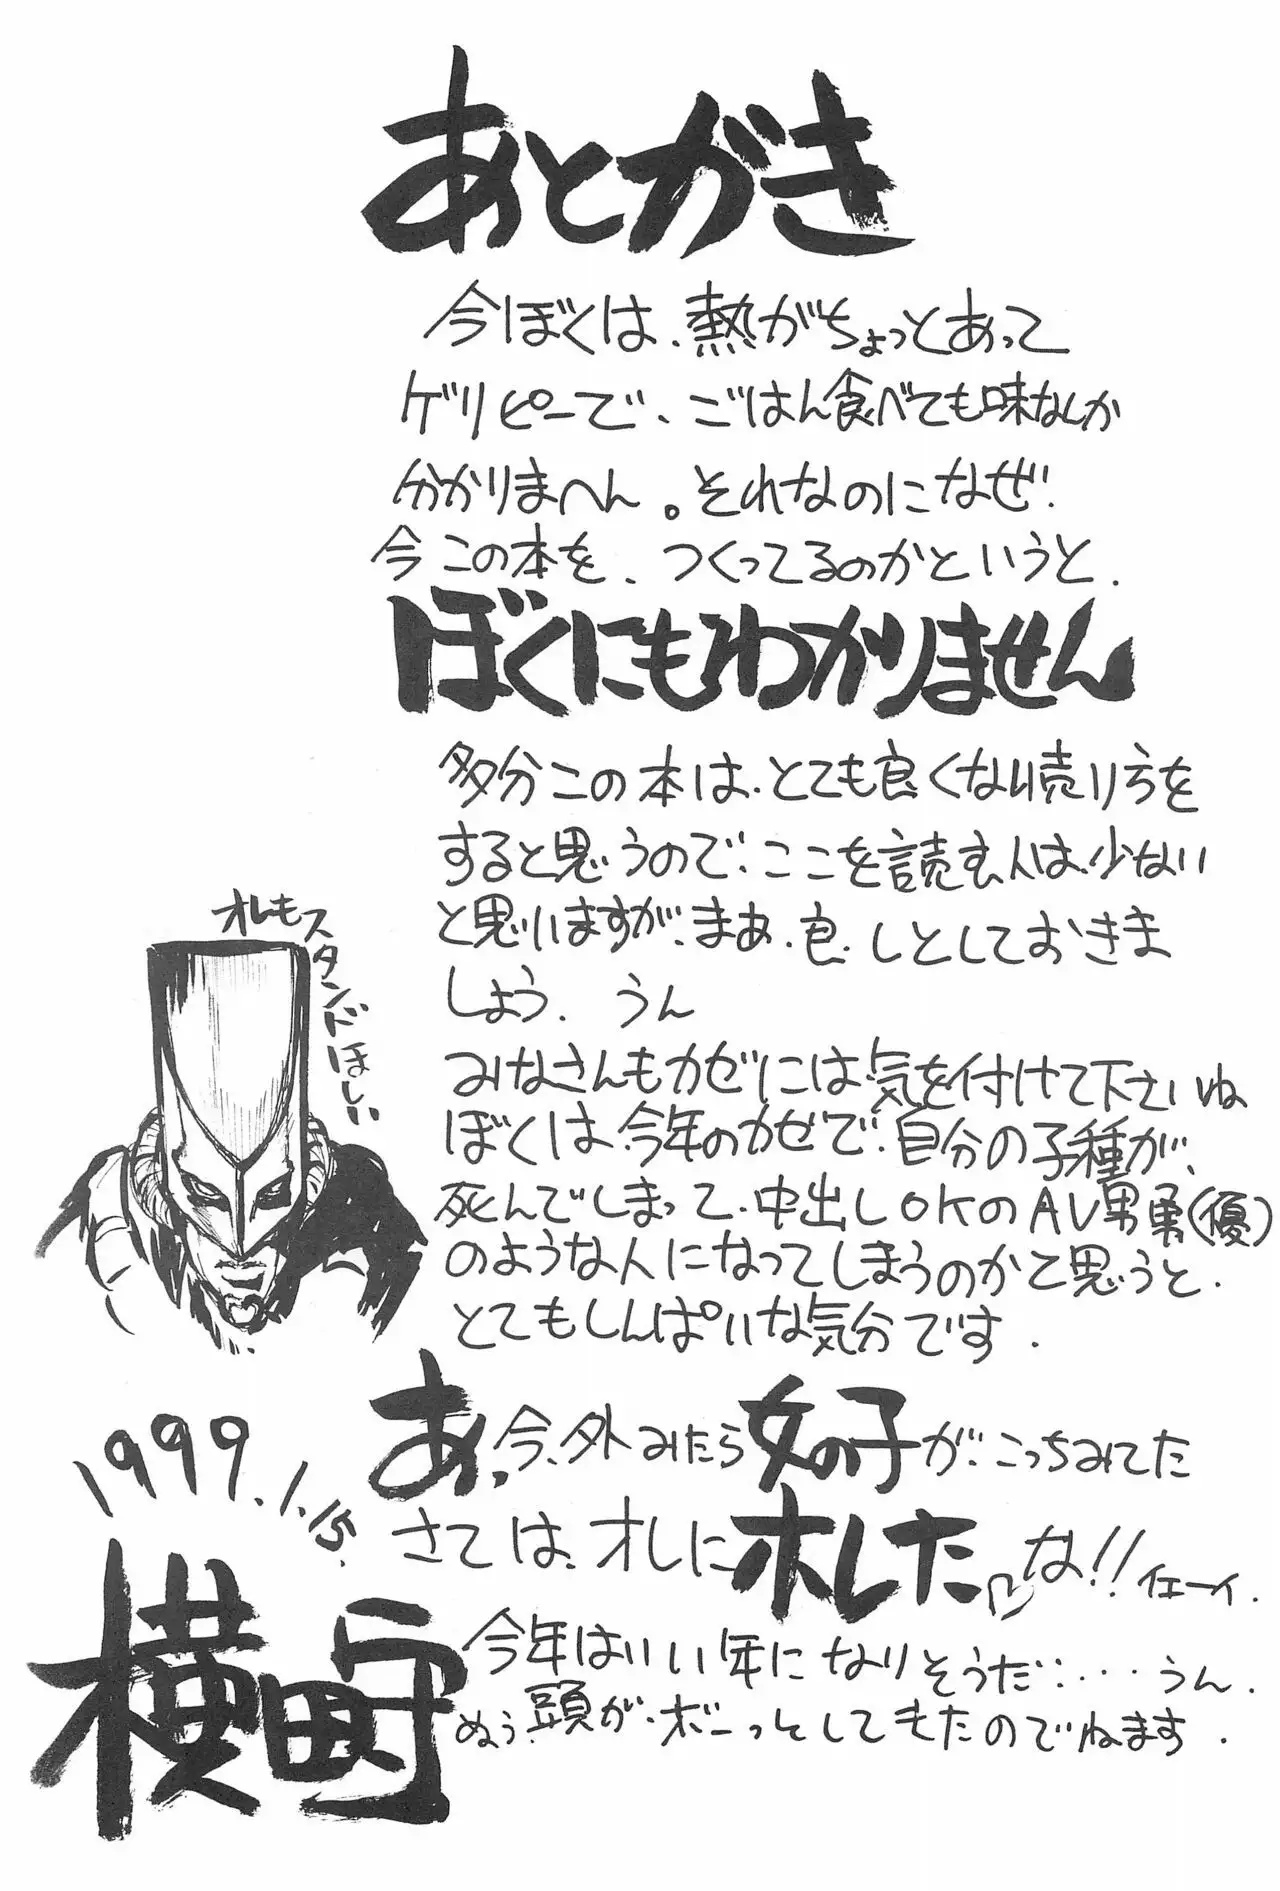 あとがき
今ぼくは、熱がちょっとあって
ゲリピーで、ごはん食べても味なんか
分かりまへん。それなのになぜ!
今この本を、つくってるのかというと、
ぼくにもわかりません
多分この本は、とても良くない売り方を
すると思うので、ここを読む人は、少ない
と思いますが、まあ、良、しとしておきま
しょう、うん
みなさんもカゼには気を付けて下さいね
ぼくは、今年のカゼで、自分の子種が、
死んでしまって、中出しOKのAV男勇(優)
のような人になってしまうのかと思うと、
とてもしんぱいな気分です.
あ、今、外みたら女の子が、こっちみてた
さては、オレにホレたな!!イエーイ.
今年はいい年になりそうだ:...うん.
ぬぅ、頭が、ボーっとしてきたのでねます.
オレもスタンドほしい
1999.1.15.
横田守